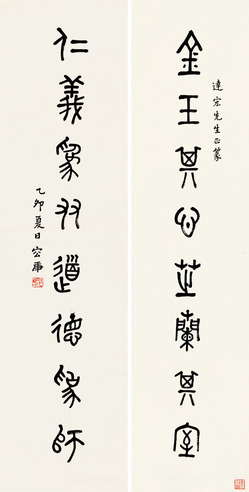 達宗先生正篆
金玉其心芝蘭其室
仁義為友道德為師
乙卯夏日容庚